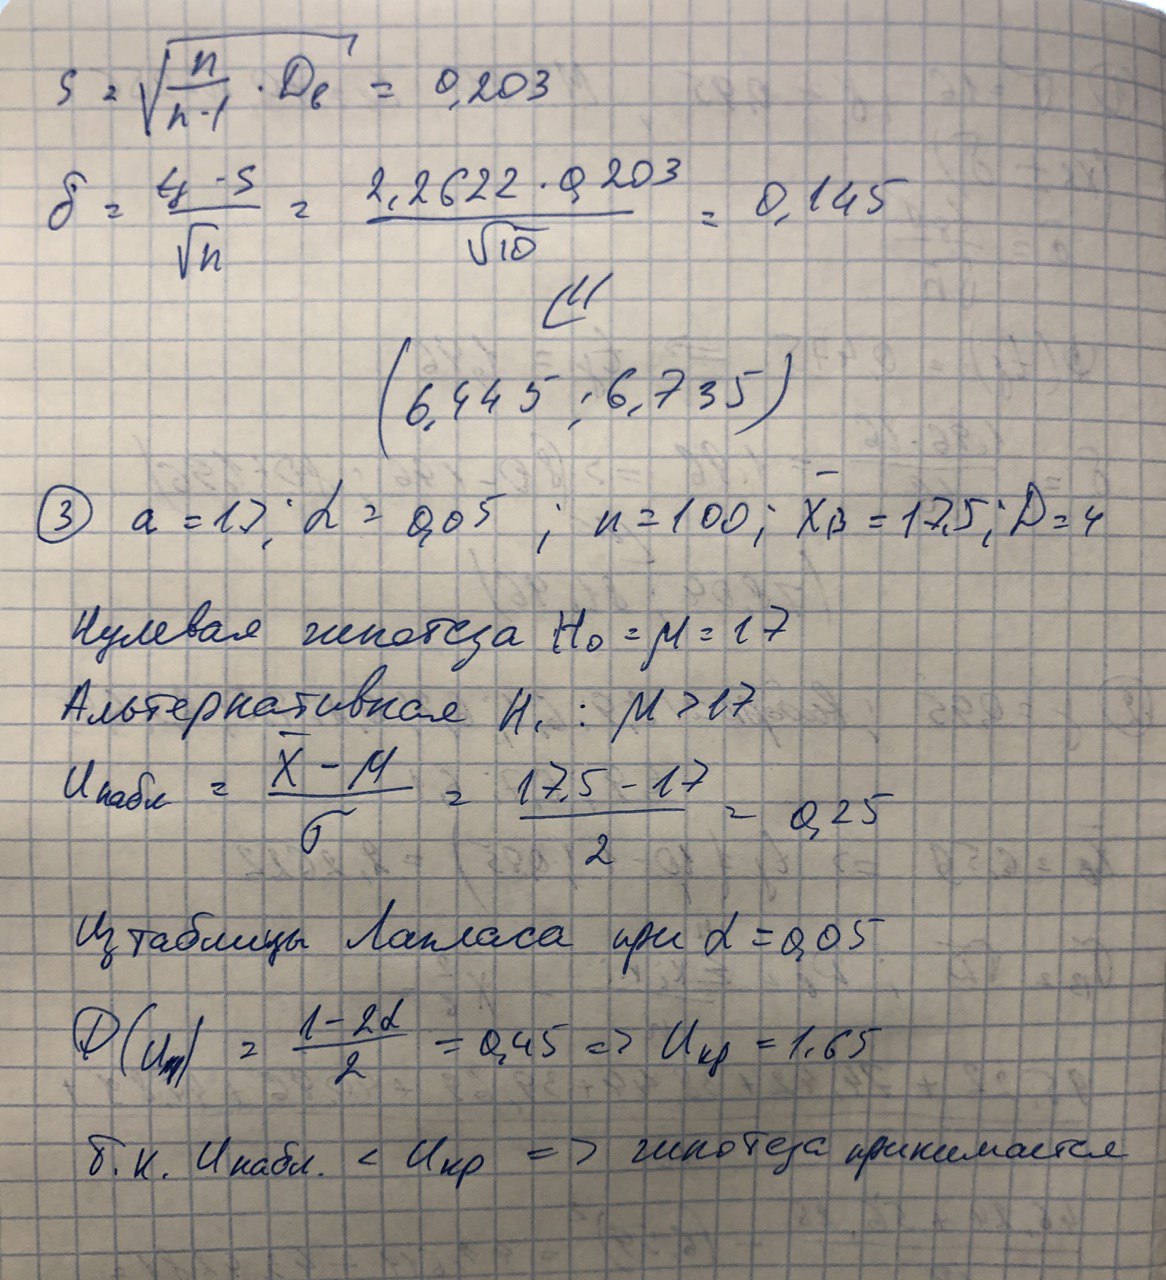 S = √(n/(n-1) · Dв) = 0,203
δ = (tγ · S)/√n = (2,2622 · 0,203)/√10 = 0,145
(6,445 ; 6,735)
③ a = 17; α = 0,05 ; n = 100; X̄в = 17,5; D = 4
Нулевая гипотеза H₀ = μ = 17
Альтернативная H₁ : μ > 17
Uнабл = (X̄ - μ)/σ = (17,5 - 17)/2 = 0,25
Из таблицы Лапласа при α = 0,05
Ф(Uкр) = (1 - 2α)/2 = 0,45 => Uкр = 1.65
т.к. Uнабл. < Uкр => гипотеза принимается